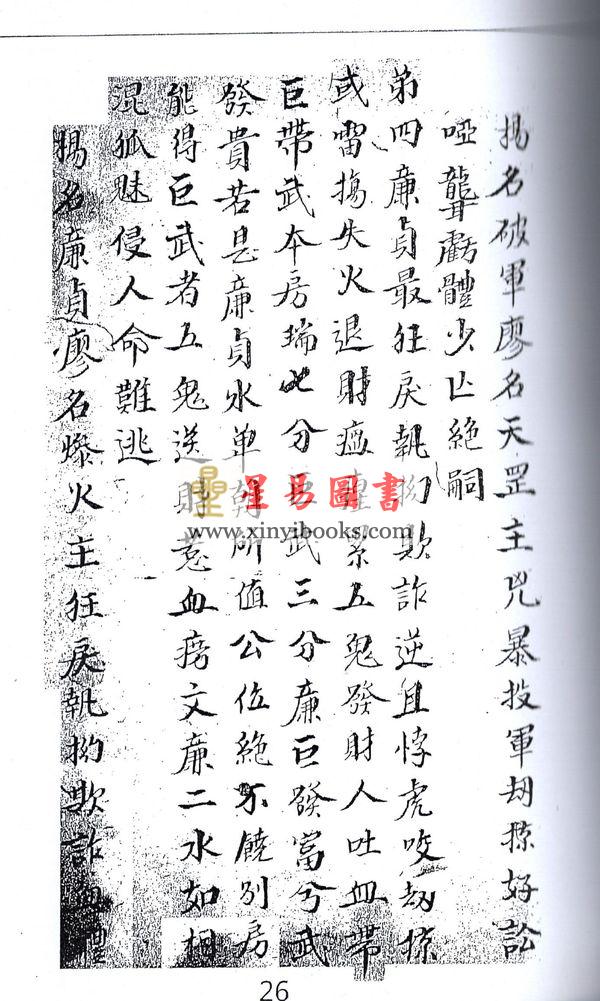 揚名破軍廖名天罡主兇暴投軍刼掠好訟
啞聾虧體少亡絕嗣
第四廉貞最狂戾執拗欺詐逆且悖虎咬刼掠
或雷揚失火退財瘟㾮累五鬼發財人吐血帶
巨帶武本房瑞七分巨武三分廉巨發富兮武
發貴若是廉貞水单朝所值公位絕不饒別房
能得巨武者五鬼送財惹血癆文廉二水如相
混狐魅侵人命難逃
揚名廉貞廖名燥火主狂戾執拗欺詐血
星易圖書
www.xinyibooks.com
26